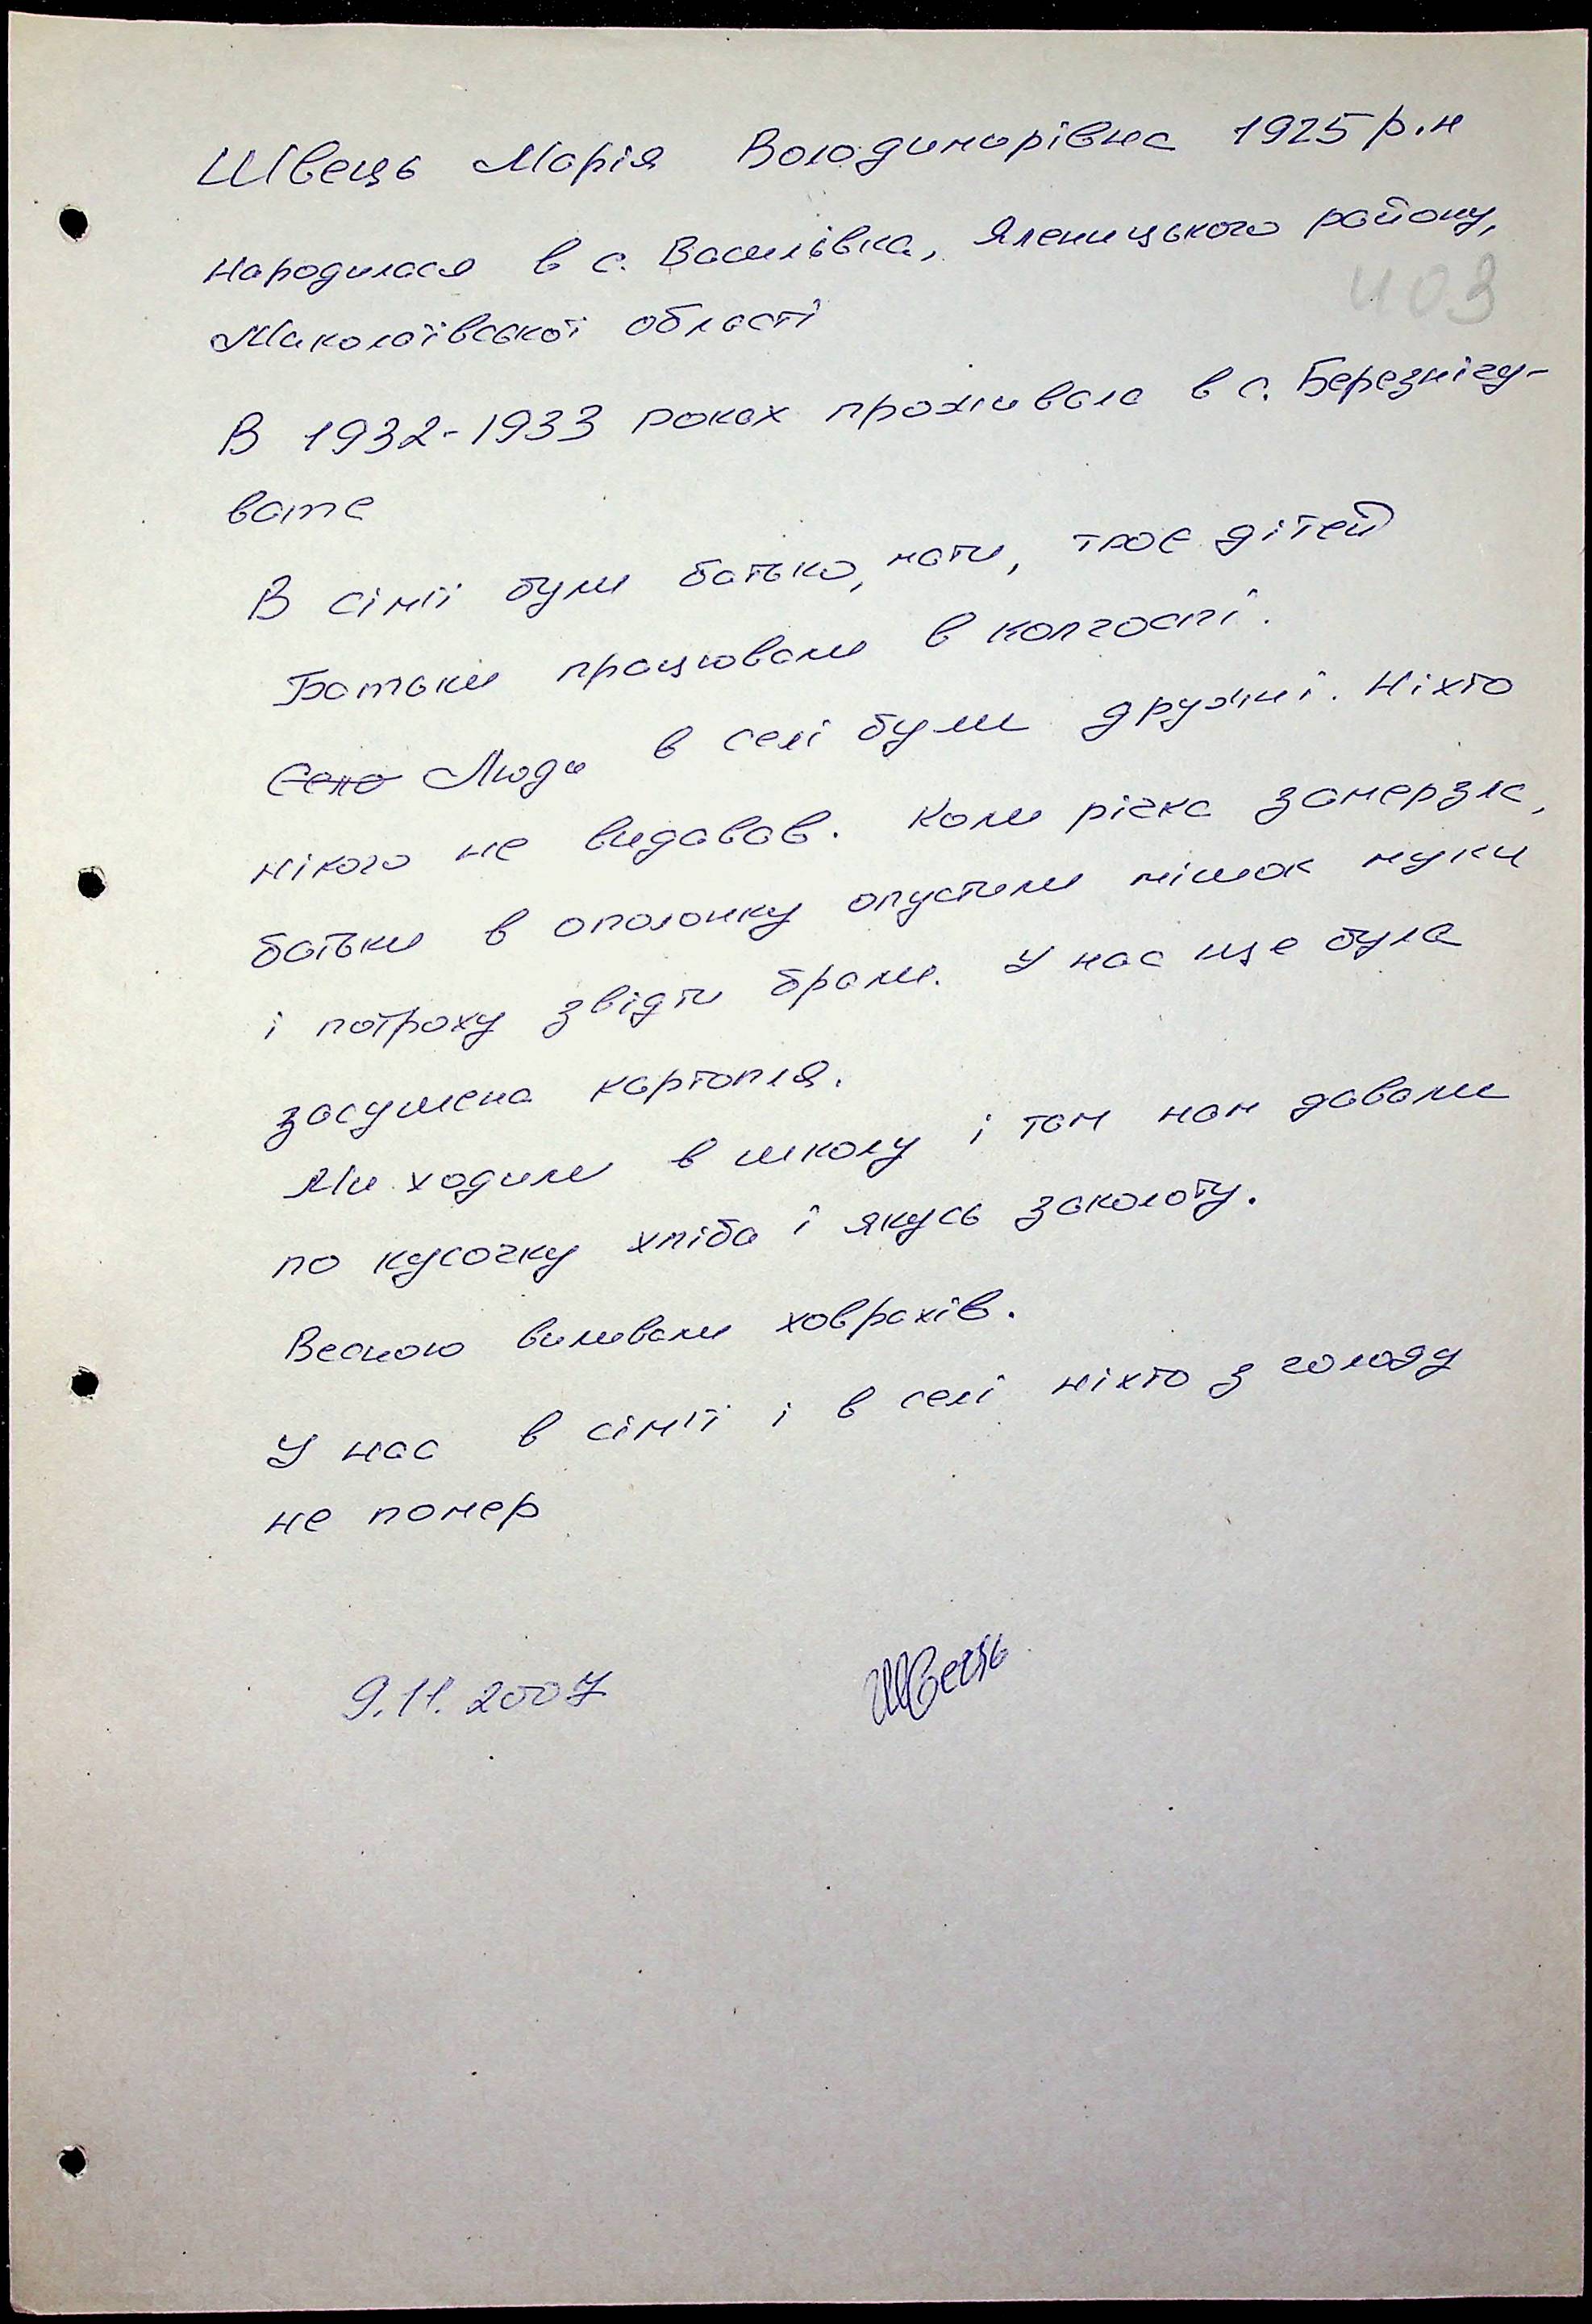 Швець Марія Володимирівна 1925 р.н
народилася в с. Василівка, Яленицького району,
403
Миколаївської області
В 1932-1933 роках проживала в с. Березнігу-
вате
В сім'ї були батько, мати, троє дітей
Батьки працювали в колгоспі.
Село Люди в селі були дружні. Ніхто
нікого не видавав. Коли річка замерзла,
батьки в ополонку опустили мішок муки
і потроху звідти брали. У нас ще була
засушена картопля.
Ми ходили в школу і там нам давали
по кусочку хліба і якусь заколоту.
Весною виливали ховрахів.
У нас в сім'ї і в селі ніхто з голоду
не помер
9.11.2007 Швець